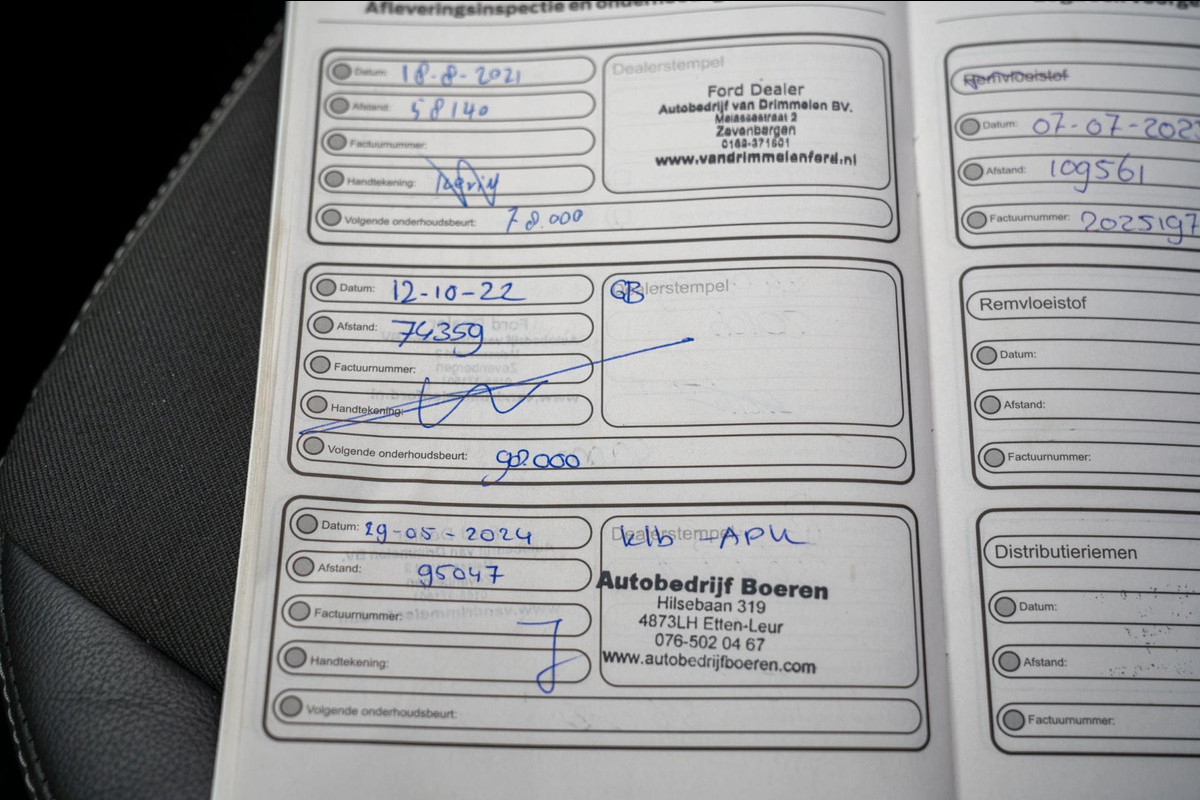 Afleveringsinspectie en
Datum: 18-8-2021
Afstand: 58140
Factuurnummer:
Handtekening:
Volgende onderhoudsbeurt: 78.000
Dealerstempel
Ford Dealer
Autobedrijf van Drimmelen BV.
Melassestraat 2
Zevenbergen
0168-371601
www.vandrimmelenford.nl
Datum: 12-10-22
Afstand: 74359
Factuurnummer:
Handtekening:
Volgende onderhoudsbeurt: 98.000
Dealerstempel
GB
Datum: 29-05-2024
Afstand: 95047
Factuurnummer:
Handtekening:
Volgende onderhoudsbeurt:
Dealerstempel
klb - APK
Autobedrijf Boeren
Hilsebaan 319
4873LH Etten-Leur
076-502 04 67
www.autobedrijfboeren.com
Remvloeistof
Datum: 07-07-202
Afstand: 109561
Factuurnummer: 2025197
Remvloeistof
Datum:
Afstand:
Factuurnummer:
Distributieriemen
Datum:
Afstand:
Factuurnummer: